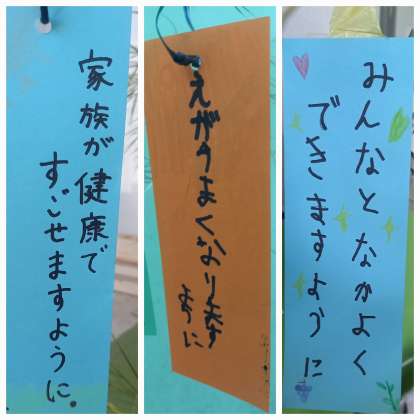 家族が健康で
すごせますように。
えがうまくなります
ように
みんなとなかよく
できますように